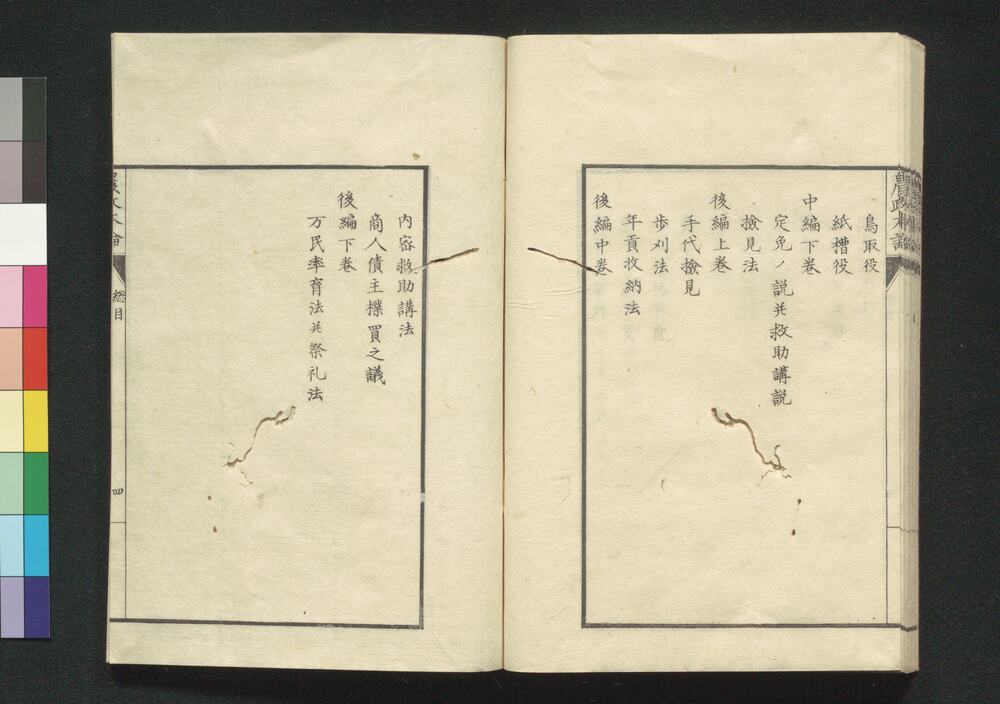 鳥取役
紙槽役
中編下巻
定免ノ説幷救助講説
撿見法
後編上巻
手代撿見
歩刈法
年貢收納法
後編中巻
内密救助講法
商人債主擽買之議
後編下巻
万民率育法幷祭礼法
総目
四